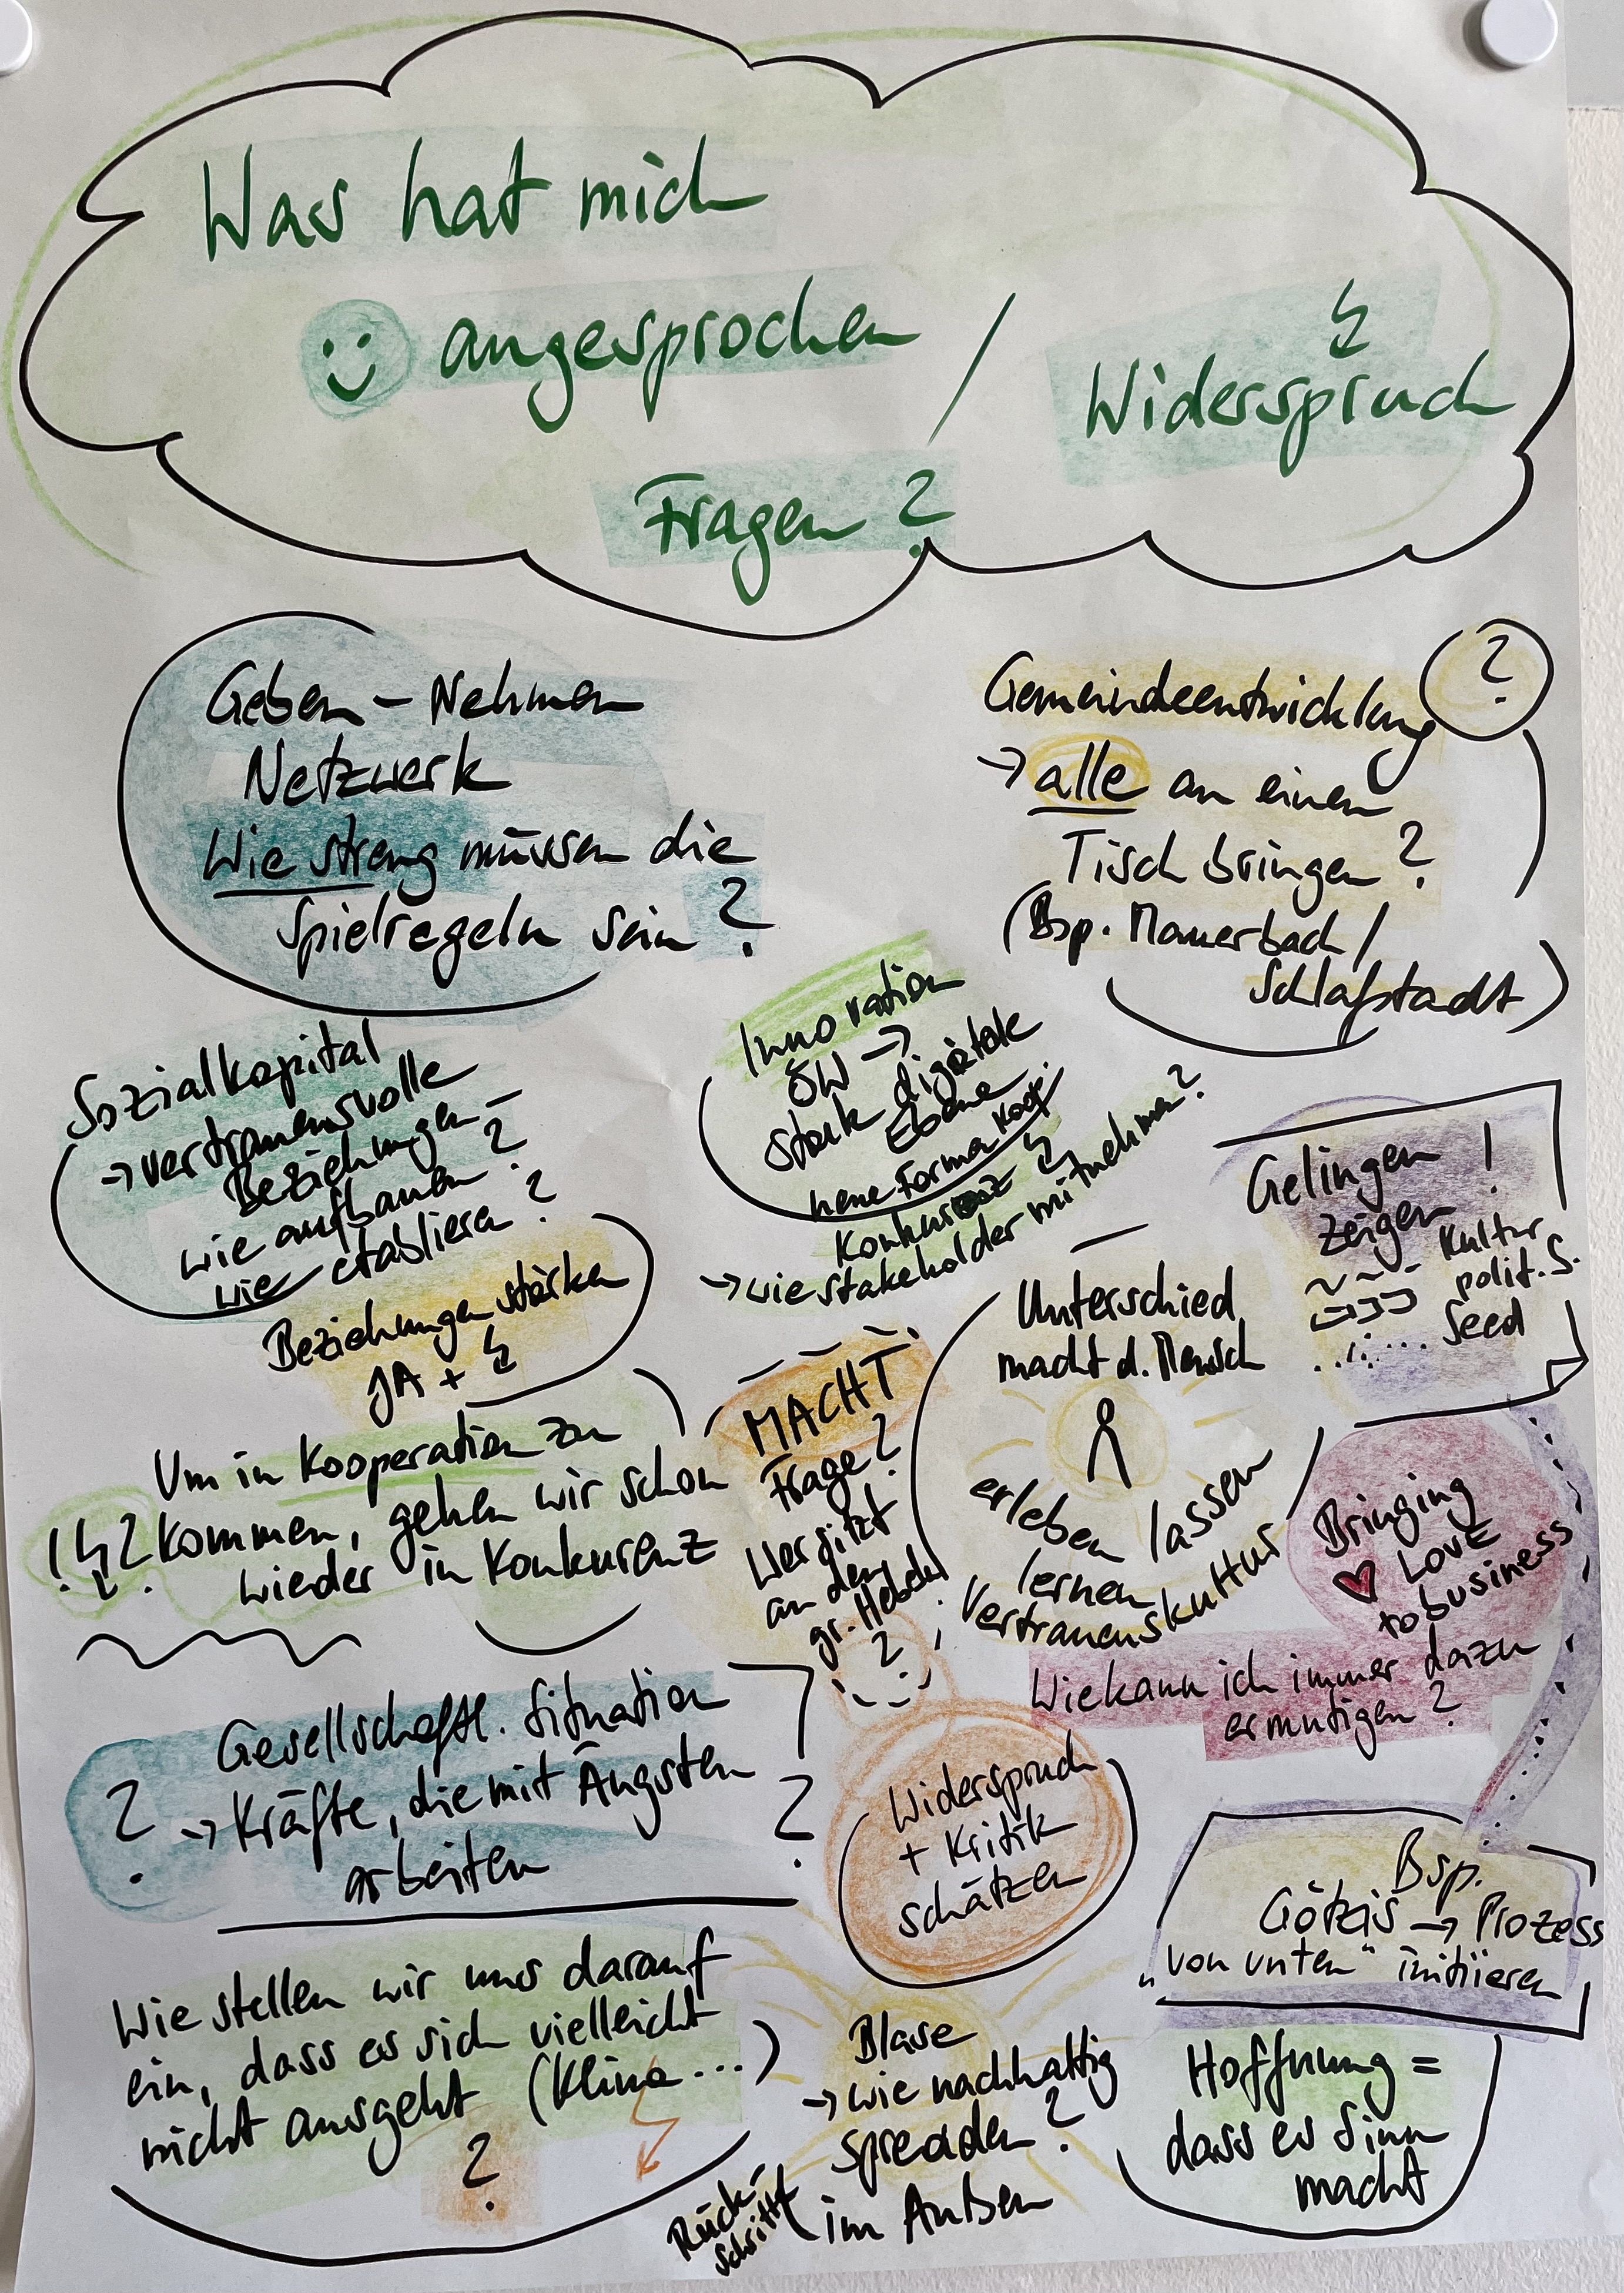 Was hat mich
angesprochen /
Widerspruch
Fragen ?
Geben - Nehmen
Netzwerk
Wie streng müssen die
Spielregeln sein ?
Gemeindeentwicklung ?
→ alle an einen
Tisch bringen ?
(Bsp. Mauerbach /
Schlafstadt)
Sozialkapital
→ vertrauensvolle
Beziehungen -
wie aufbauen ?
wie etablieren ?
Beziehungen stärken
JA +
Innovation
ÖW →
stark digitale
Ebene
neue Formen Koop.
Konkurenz ?
→ wie stakeholder mitnehmen ?
Gelingen !
zeigen
Kultur
polit. S.
Seed
Um in Kooperation zu
! ? kommen, gehen wir schon
wieder in Konkurenz
MACHT
Frage ?
Wer sitzt
an den
gr. Hebel
?
Unterschied
macht d. Mensch
erleben lassen
lernen
Vertrauenskultur
Bringing
♥ LOVE
to business
Wie kann ich immer dazu
ermutigen ?
Gesellschaftl. Situation
? → Kräfte, die mit Ängsten ?
arbeiten
Widerspruch
+ Kritik
schätzen
Bsp.
Götzis → Prozess
„von unten" initiieren
Wie stellen wir uns darauf
ein, dass es sich vielleicht
nicht ausgeht (Klima ...)
?
Blase
→ wie nachhaltig
spreaden ?
im Außen
Rück-
schritt
Hoffnung =
dass es Sinn
macht